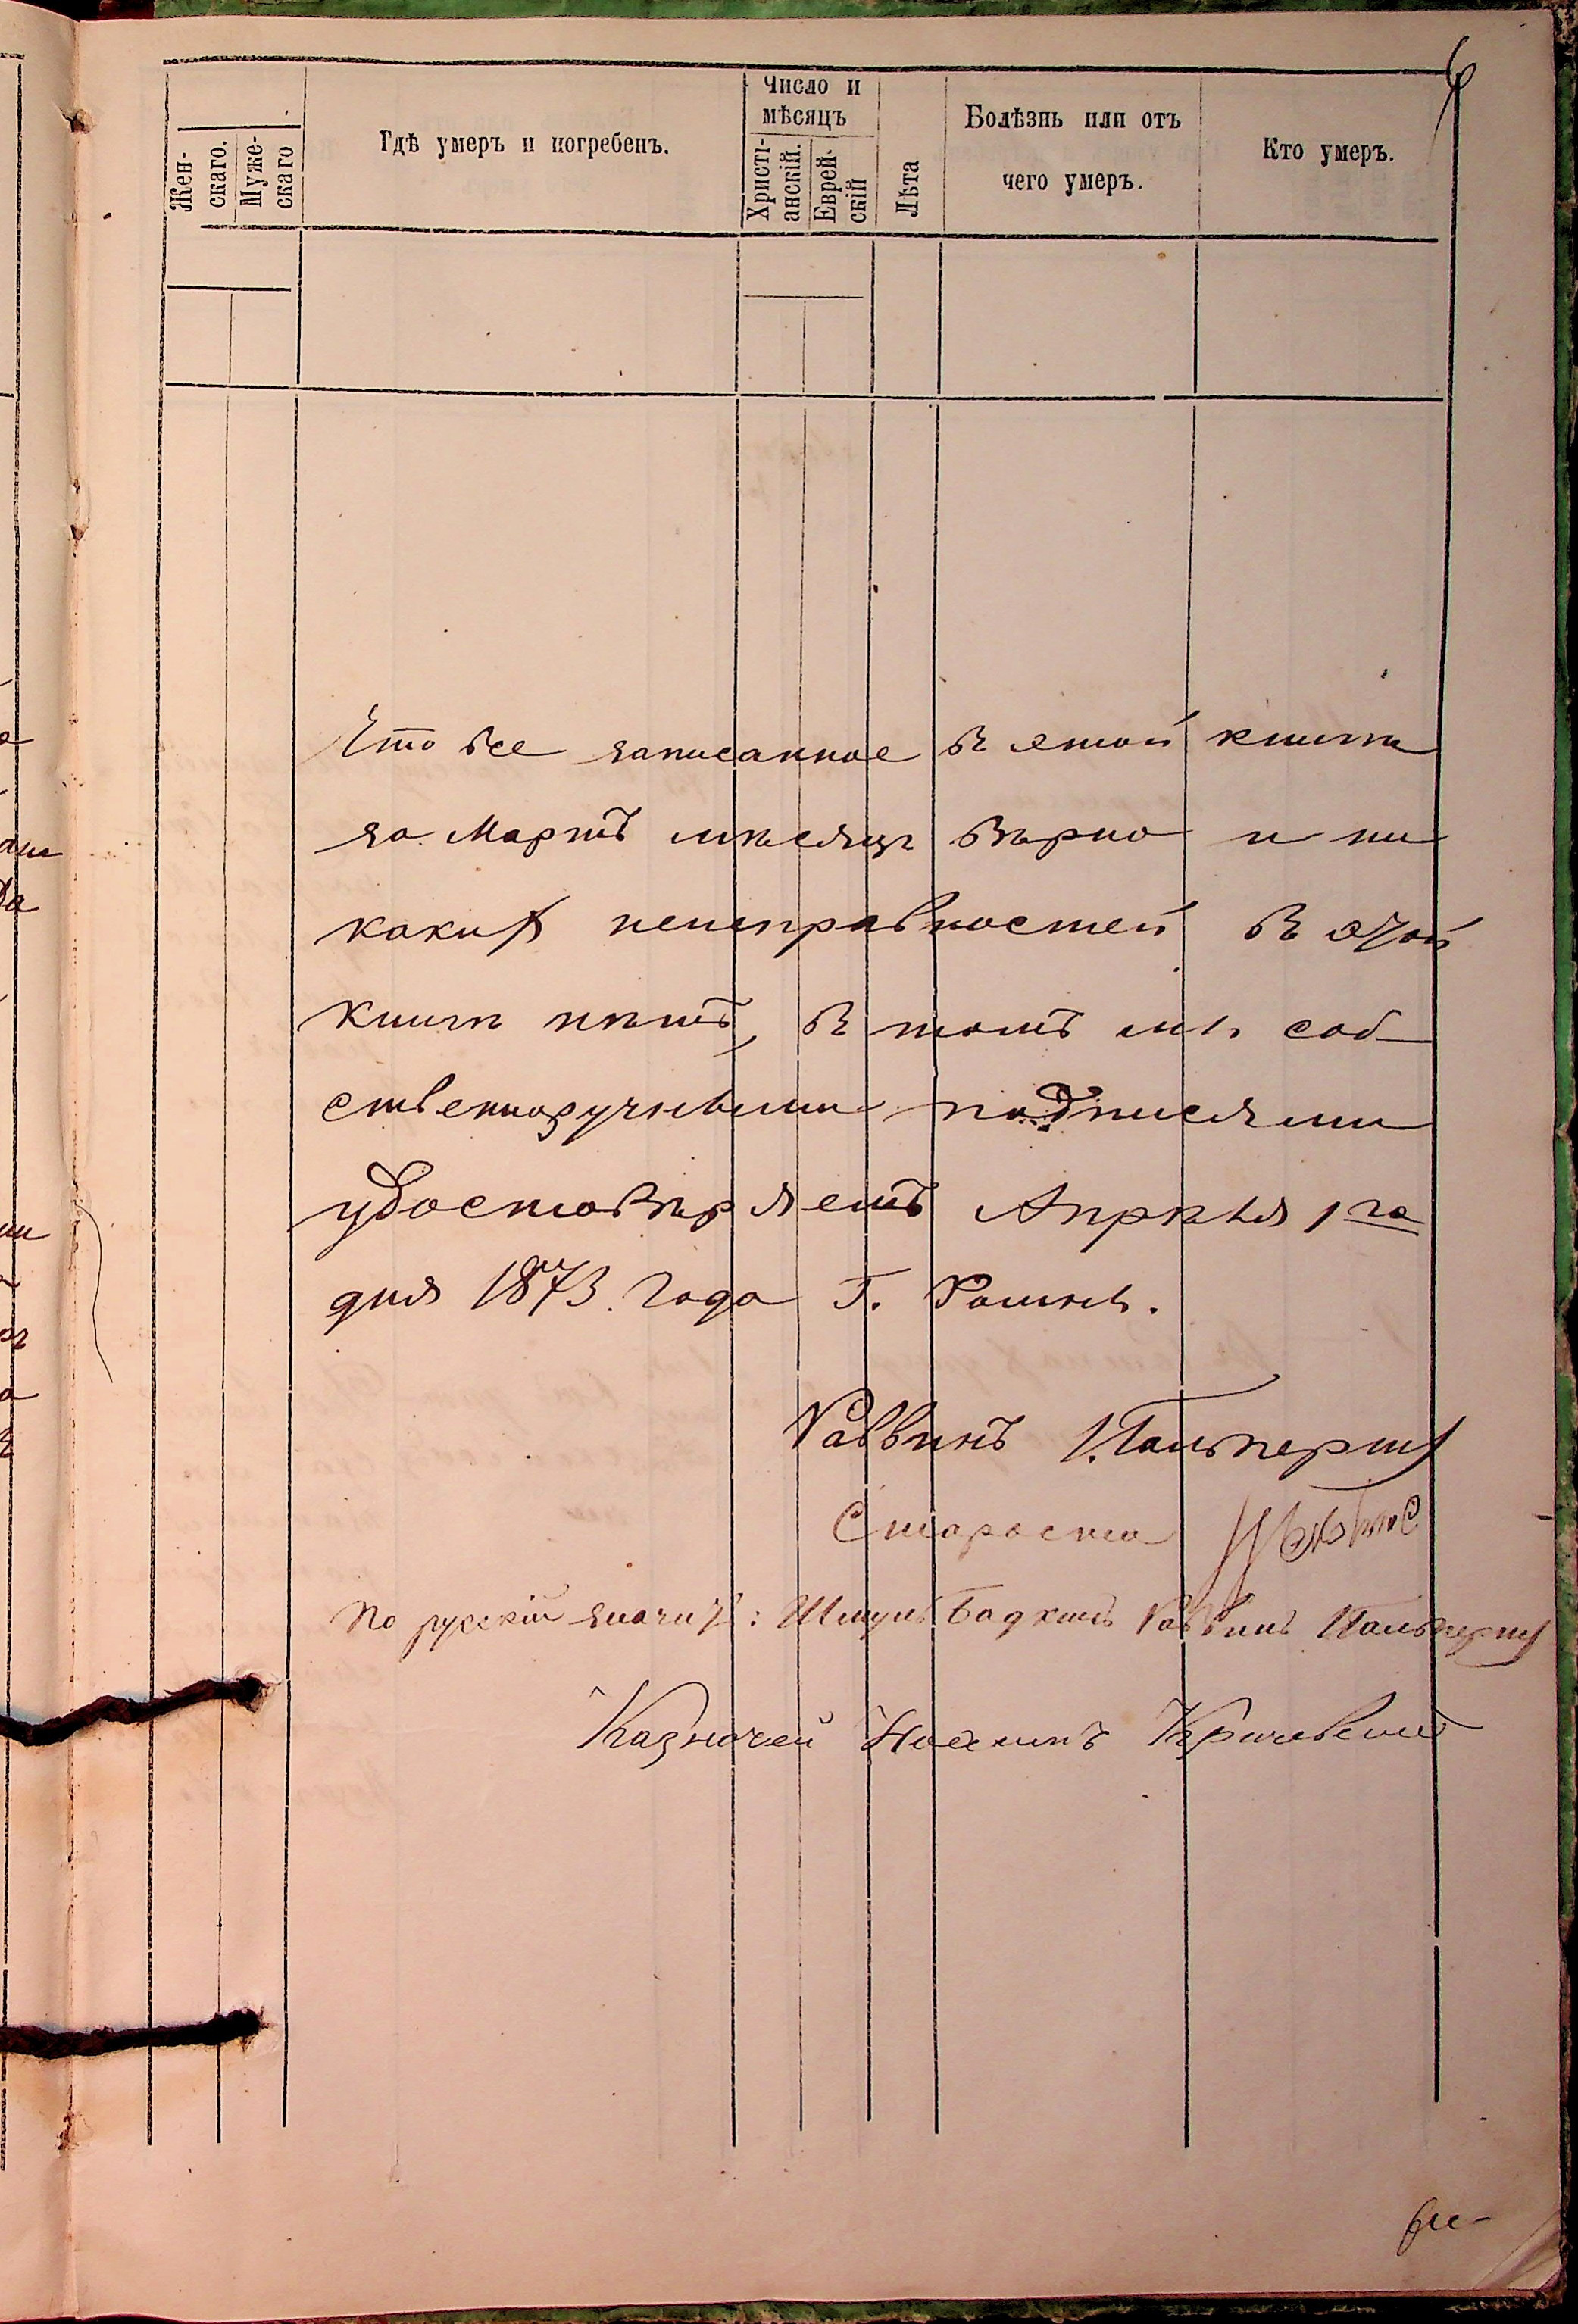 6
Жен-
скаго.
Муже-
скаго
Гдѣ умеръ и погребенъ.
Число и
мѣсяцъ
Христі-
анскій.
Еврей-
скій
Лѣта
Болѣзнь или отъ
чего умеръ.
Кто умеръ.
Что все записанное въ этой книги
за Мартъ мѣсяцъ вѣрно и ни
какихъ неисправностей въ этой
книгѣ нѣтъ, въ томъ мы соб
ственноручными подписями
удостовѣряемъ Апрѣля 1го
дня 1873. Года Г. Ромны.
Раввинъ И. Гальперинъ
Староста
По русскій значитъ: Шмуль Бадхинъ Раввинъ Гальперинъ
Казначей Нахимъ Кричевскій